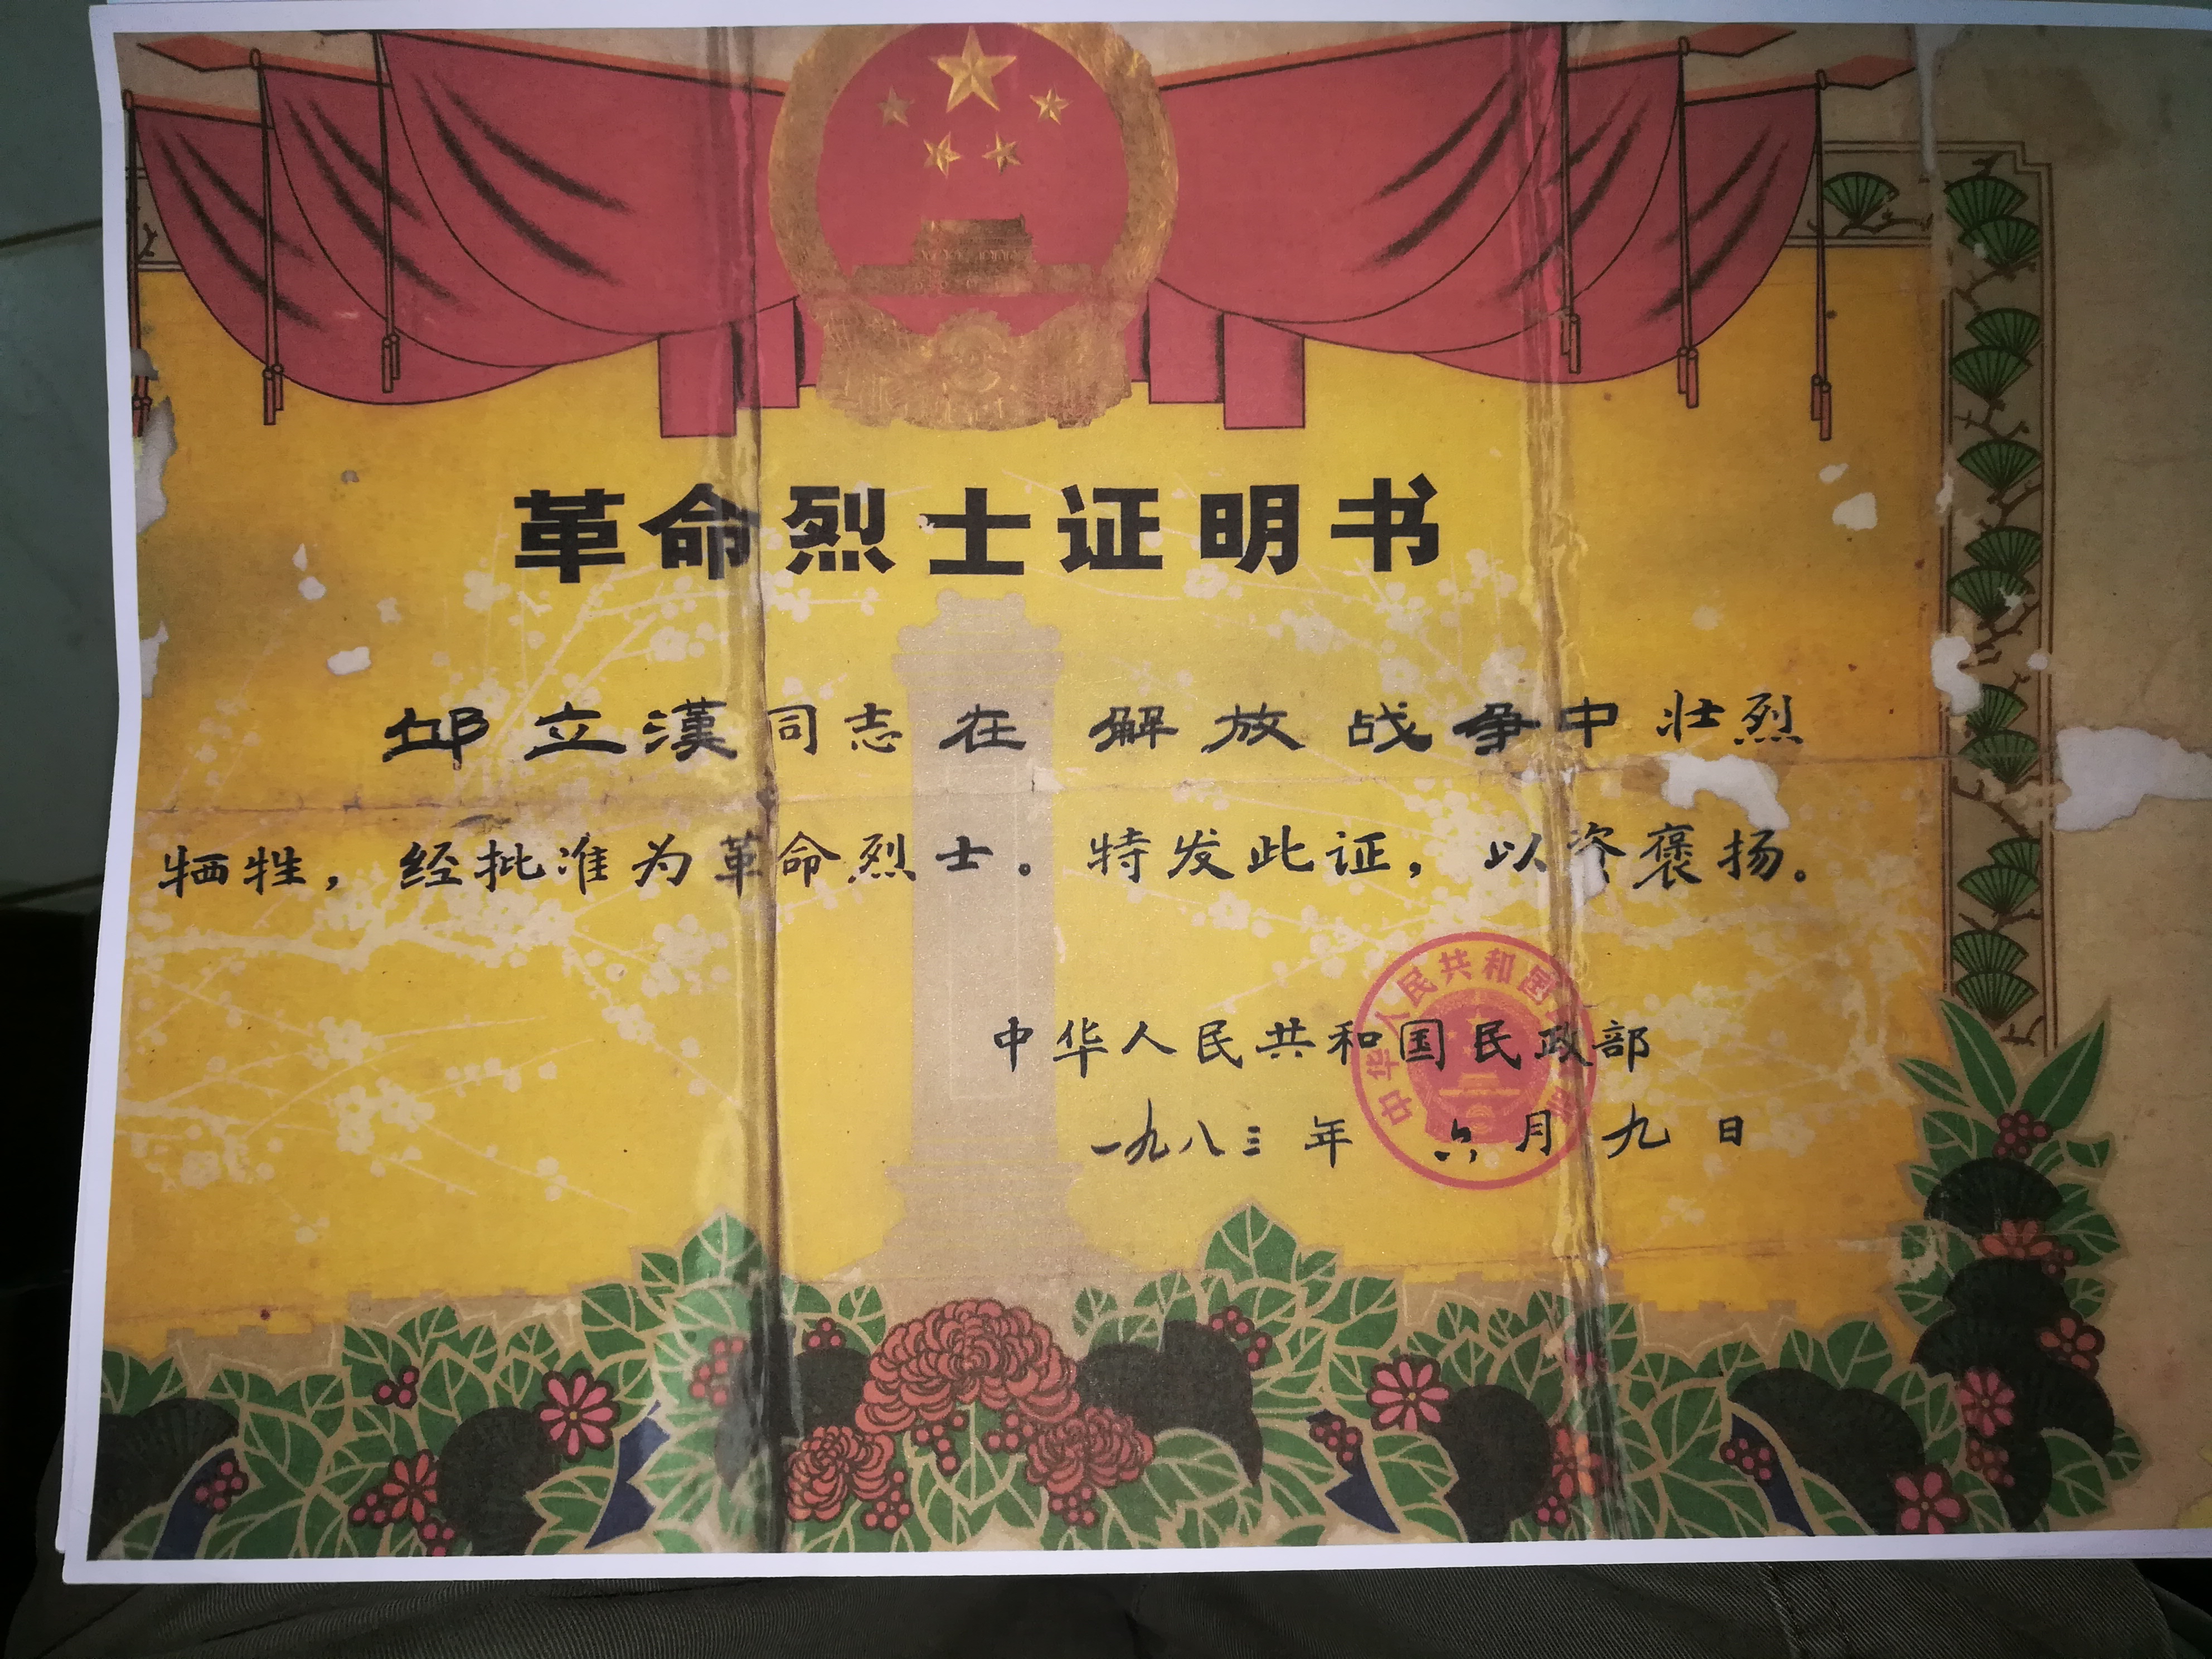 革命烈士证明书
邱立漢同志在解放战争中壮烈
牺牲，经批准为革命烈士。特发此证，以资褒扬。
中华人民共和国民政部
一九八三年六月九日
中华人民共和国